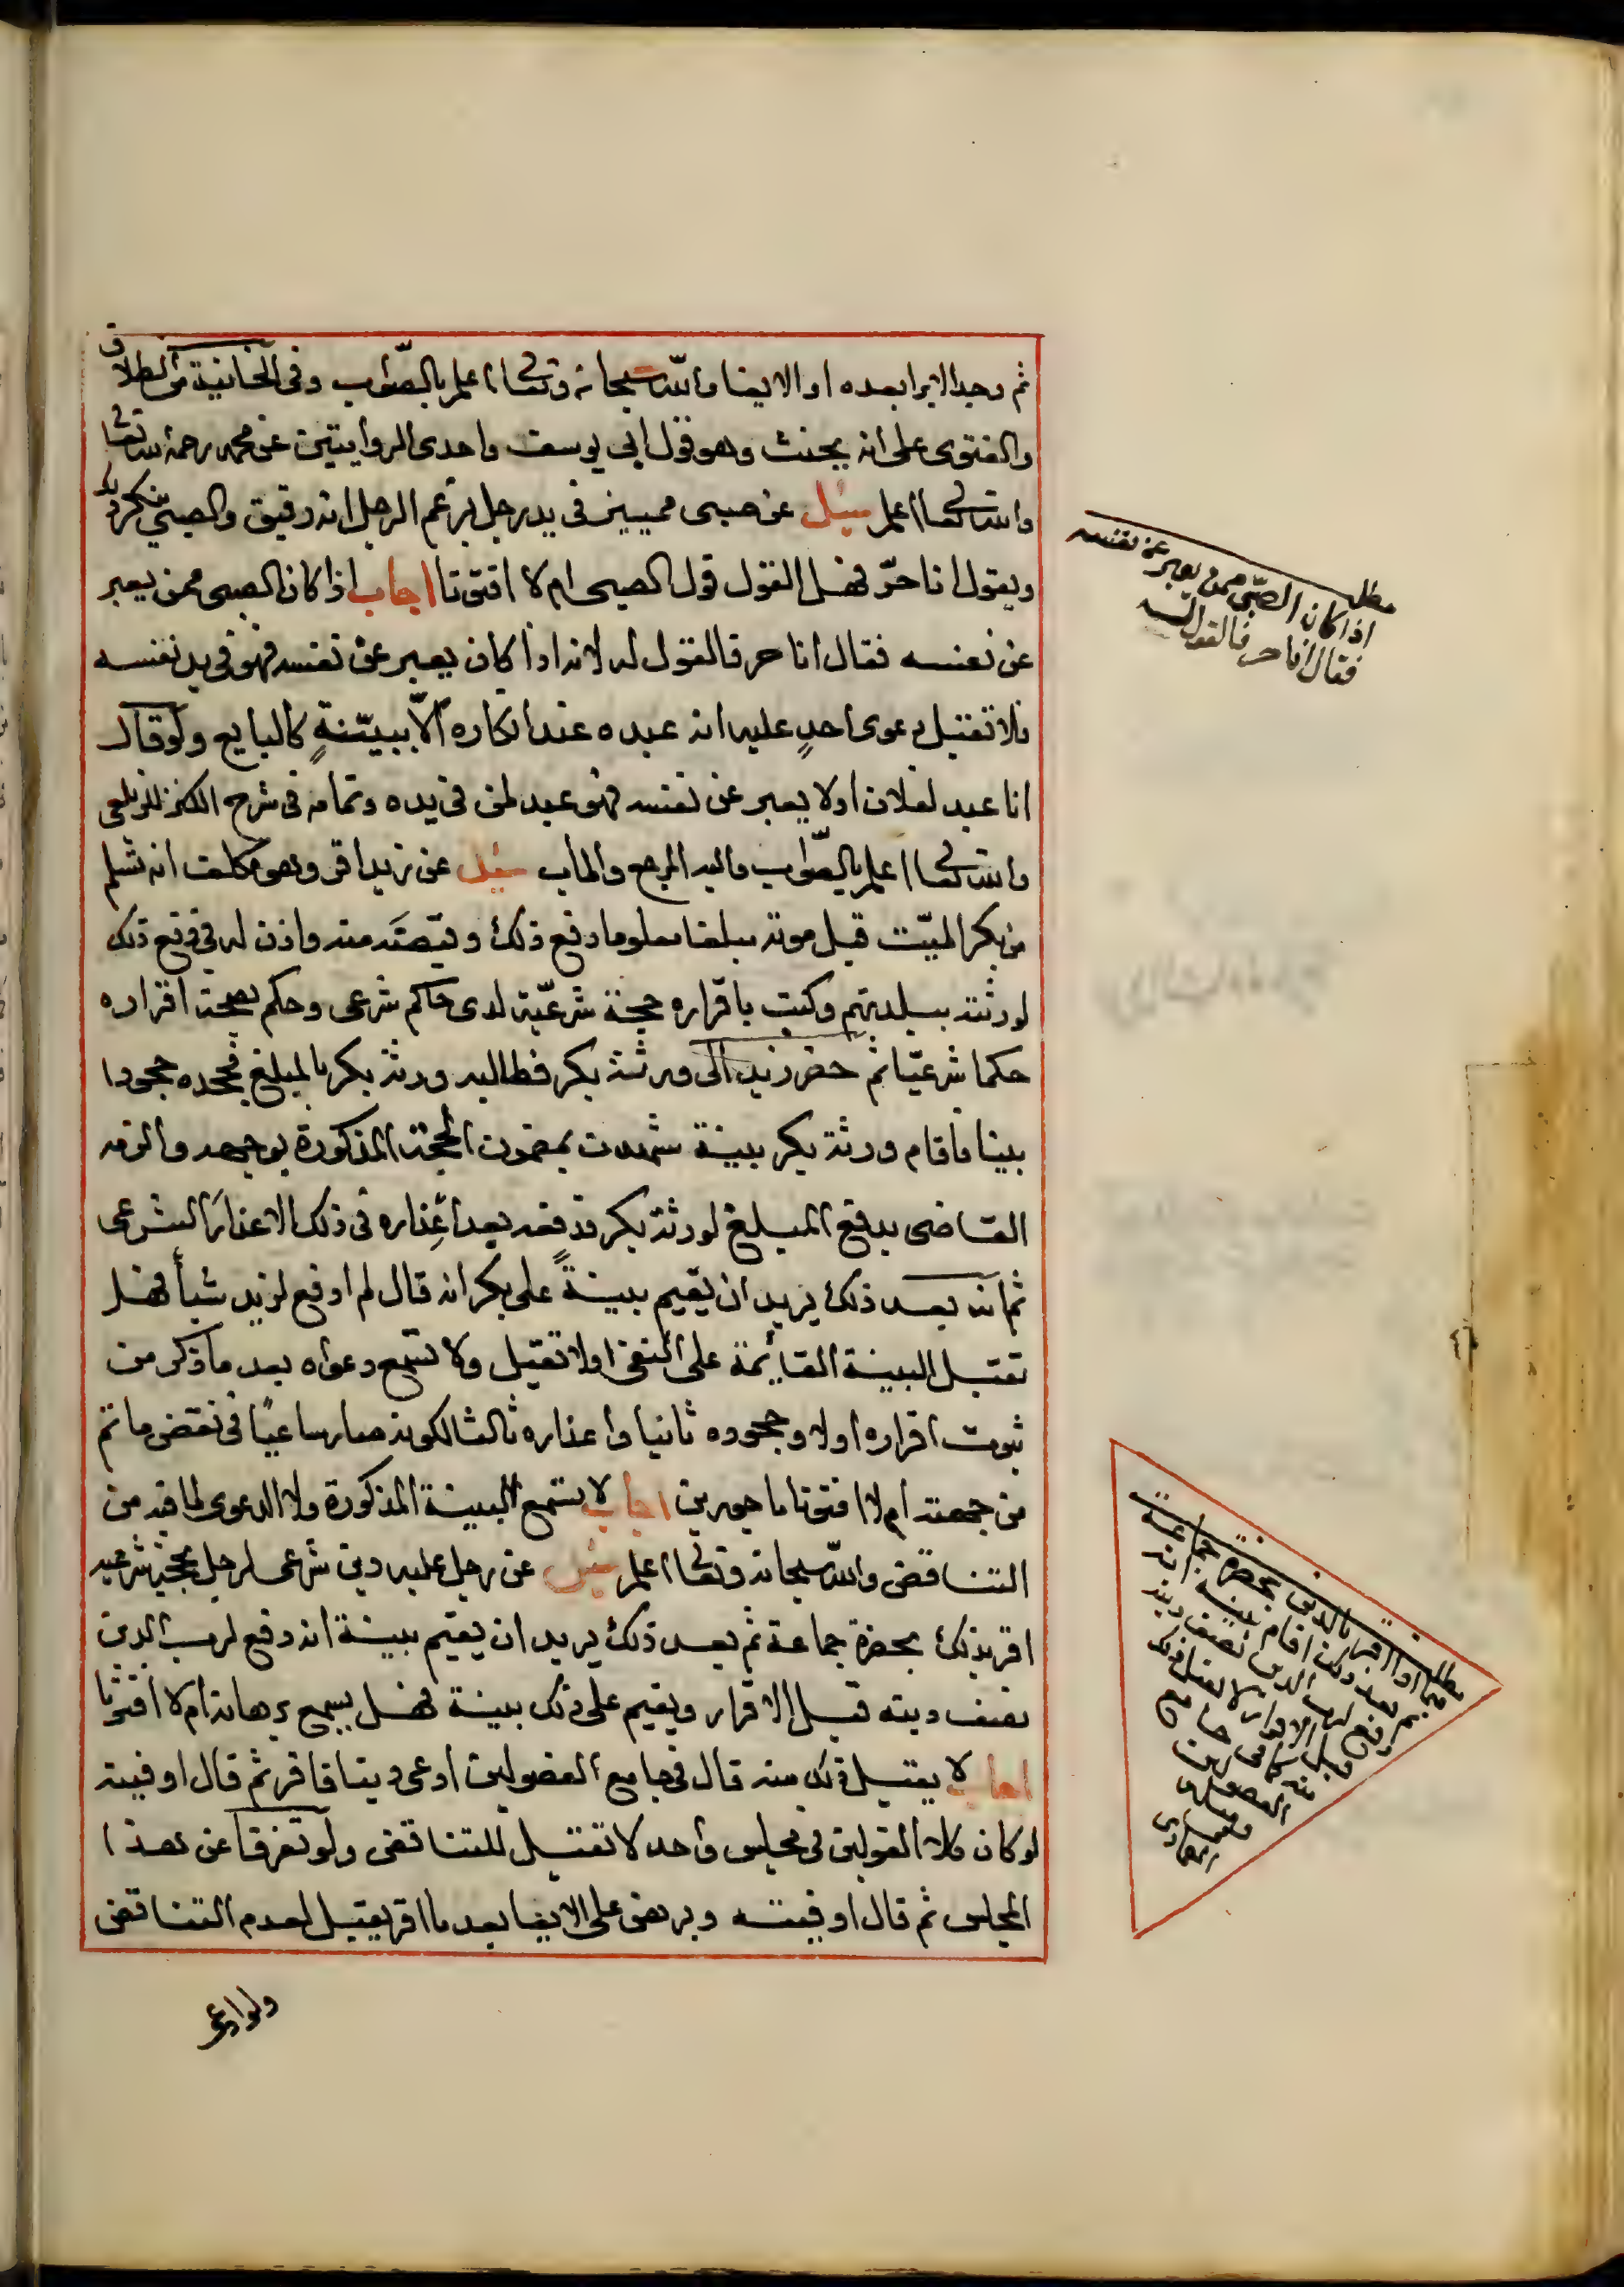 ثم وجد الابرا بعده او الايفا والله سبحانه وتعالى اعلم بالصواب وفى الخانية من الطلاق
والفتوى على انه يحنث وهو قول ابى يوسف واحدى الروايتين عن محمد رحمه الله تعالى
والله تعالى اعلم سئل عن صبى مميز فى يد رجل يزعم الرجل انه رقيق والصبي ينكر
ويقول انا حرّ فهل القول قول الصبى ام لا افتونا اجاب اذا كان الصبى ممن يعبر
عن نفسه فقال انا حر فالقول له لانه اذا كان يعبر عن نفسه فهو فى يد نفسه
فلا تقبل دعوى احدٍ عليه انه عبده عند انكاره الّا ببيّنةٍ كالبايع ولو قال
انا عبد لفلان او لا يعبر عن نفسه فهو عبد لمن فى يده وتمامه فى شرح الكنز للزيلعى
والله تعالى اعلم بالصّواب واليه المرجع والمآب سئل عن زيد اقر وهو مكلف انه تسلم
من بكر الميّت قبل موته مبلغا معلوما دفع ذلك وقبضه منه واذن له فى دفع ذلك
لورثته ببلدتهم وكتب باقراره حجة شرعيّة لدى حاكم شرعى وحكم بصحة اقراره
حكما شرعيّا ثم حضر زيد الى ورثة بكر فطالبه ورثة بكر بالمبلغ فجحده جحودا
بينا فاقام ورثة بكر بينة شهدت بمضمون الحجة المذكورة بوجهه والزمه
القاضى بدفع المبلغ لورثة بكر فدفعه بعد اعذاره فى ذلك الاعذار الشرعى
ثم انه بعد ذلك يريد ان يقيم بينةً على بكر انه قال لم ادفع لزيد شيأ فهل
تقبل البينة القائمة على النفى او لا تقبل ولا تسمع دعواه بعد ما ذكر من
ثبوت اقراره اولا وجحوده ثانيا واعذاره ثالثا لكونه صار ساعيًا فى نقض ما تم
من جهته ام لا افتونا ماجورين اجاب لا تسمع البينة المذكورة ولا الدعوى لما فيه من
التناقض والله سبحانه وتعالى اعلم سئل عن رجل عليه دين شرعى لرجل بحجة شرعية
اقر بذلك بحضرة جماعة ثم بعد ذلك يريد ان يقيم بينة انه دفع لرب الدين
نصف دينه قبل الاقرار ويقيم على ذلك بينة فهل يسمع برهانه ام لا افتونا
اجاب لا يقبل ذلك منه قال فى جامع الفصولين ادعى دينا فاقر ثم قال اوفيته
لو كان كلا القولين فى مجلس واحد لا تقبل للتناقض ولو تفرقا عن هذا
المجلس ثم قال اوفيته وبرهن على الايفا بعد ما اقر يقبل لعدم التناقض
ولو ادعى
مطلب
اذا كان الصبّى ممن يعبر عن نفسه
فقال انا حر فالقول له
مطلب
فيما اذا اقر بالدين بحضرة جماعة
ثم بعد ذلك اقام بينة انه
دفع لرب الدين نصف دينه
قبل الاقرار لا يقبل ذلك
منه كما فى جامع
الفصولين